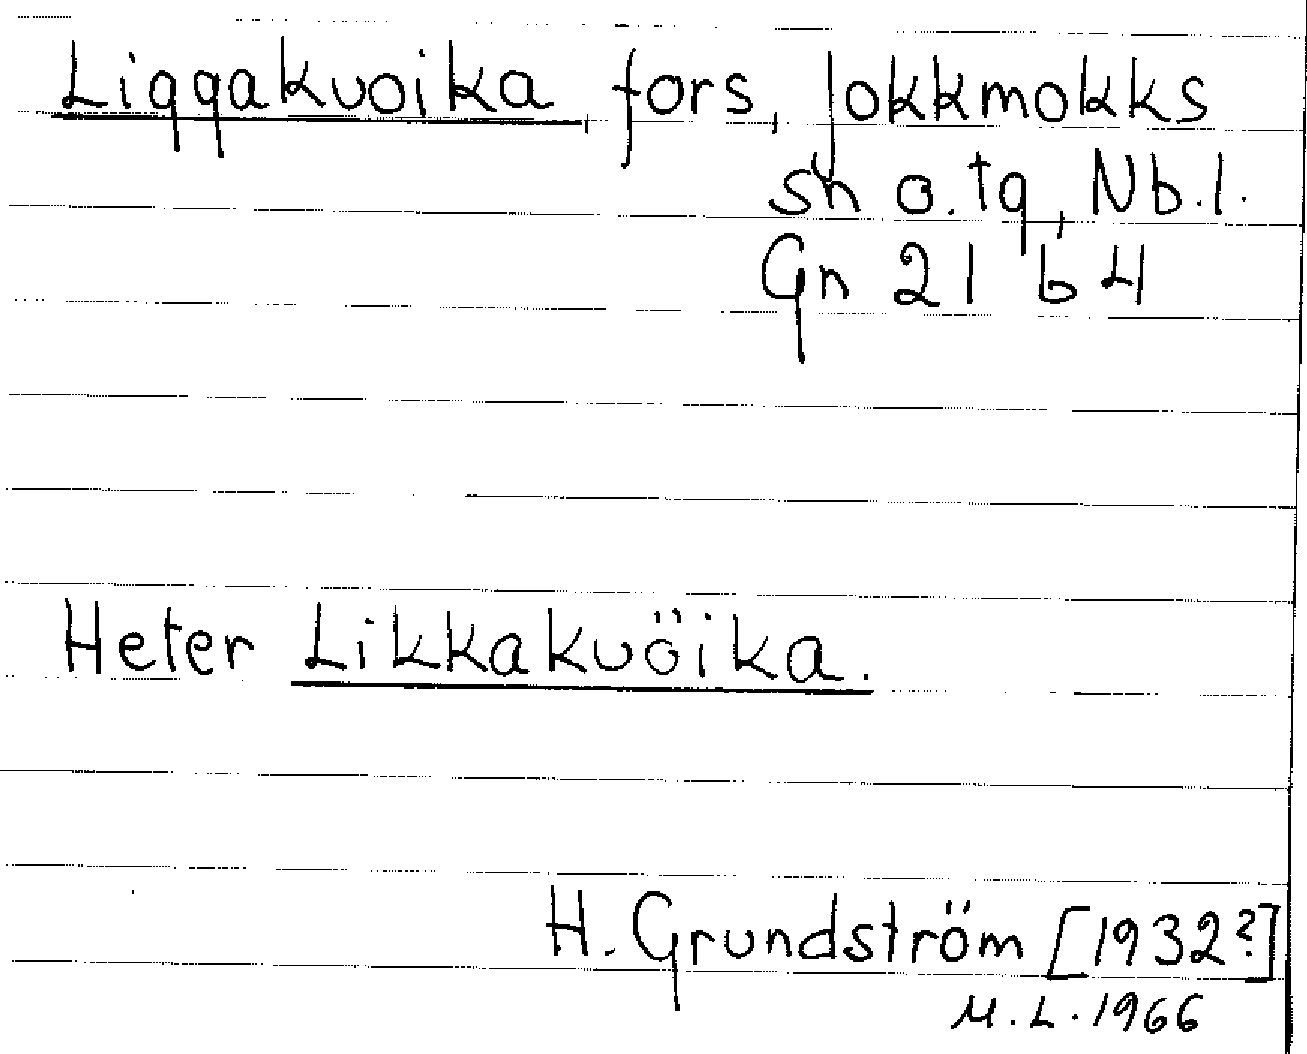 Liggakuoika, fors, Jokkmokks
sn o. tg, Nb.l.
Gn 21 b 4
Heter Likkakuöika.
H. Grundström [1932?]
M.L. 1966